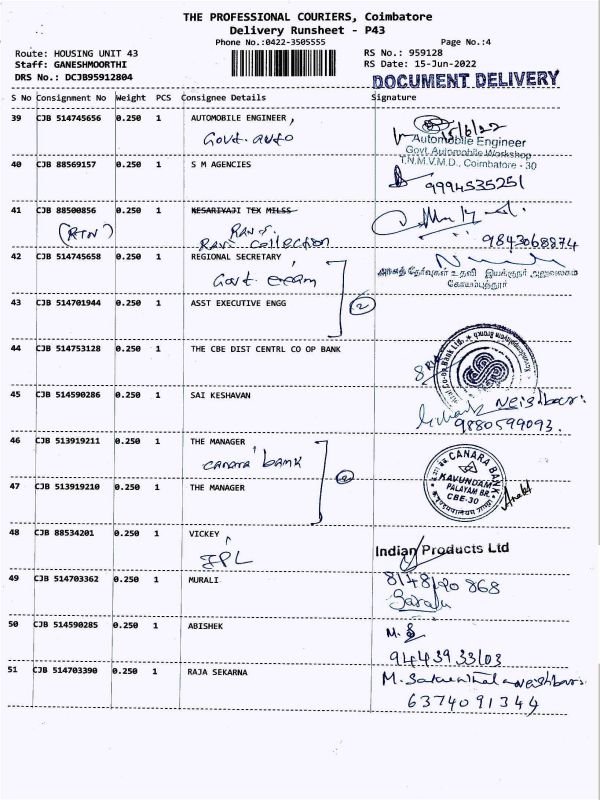 THE PROFESSIONAL COURIERS, Coimbatore
Delivery Runsheet - P43
Phone No.:0422-3505555
Page No.:4
Route: HOUSING UNIT 43
RS No.: 959128
Staff: GANESHMOORTHI
RS Date: 15-Jun-2022
DRS No.: DCJB95912804
DOCUMENT DELIVERY
S No Consignment No Weight PCS Consignee Details Signature
39 CJB 514745656 0.250 1 AUTOMOBILE ENGINEER,
Govt. auto
15/6/22
Automobile Engineer
Govt. Automobile Workshop
T.N.M.V.M.D., Coimbatore - 30
40 CJB 88569157 0.250 1 S M AGENCIES
9994535251
41 CJB 88500856 0.250 1 KESARIYAJI TEX MILSS
(RTN)
Ravi collection
9843068874
42 CJB 514745658 0.250 1 REGIONAL SECRETARY,
Govt. exam
அரசுத் தேர்வுகள் உதவி இயக்குநர் அலுவலகம்
கோயம்புத்தூர்
43 CJB 514701944 0.250 1 ASST EXECUTIVE ENGG
2
44 CJB 514753128 0.250 1 THE CBE DIST CENTRL CO OP BANK
45 CJB 514590286 0.250 1 SAI KESHAVAN
Neighbour
9880599093.
46 CJB 513919211 0.250 1 THE MANAGER
canara bank
2
CANARA BANK
KAVUNDAM
PALAYAM BR.
CBE-30
47 CJB 513919210 0.250 1 THE MANAGER
48 CJB 88534201 0.250 1 VICKEY
IPL
Indian Products Ltd
49 CJB 514703362 0.250 1 MURALI
8148190868
50 CJB 514590285 0.250 1 ABISHEK
9443933103
51 CJB 514703390 0.250 1 RAJA SEKARNA
M. Sakunthala Neighbour
6374091344